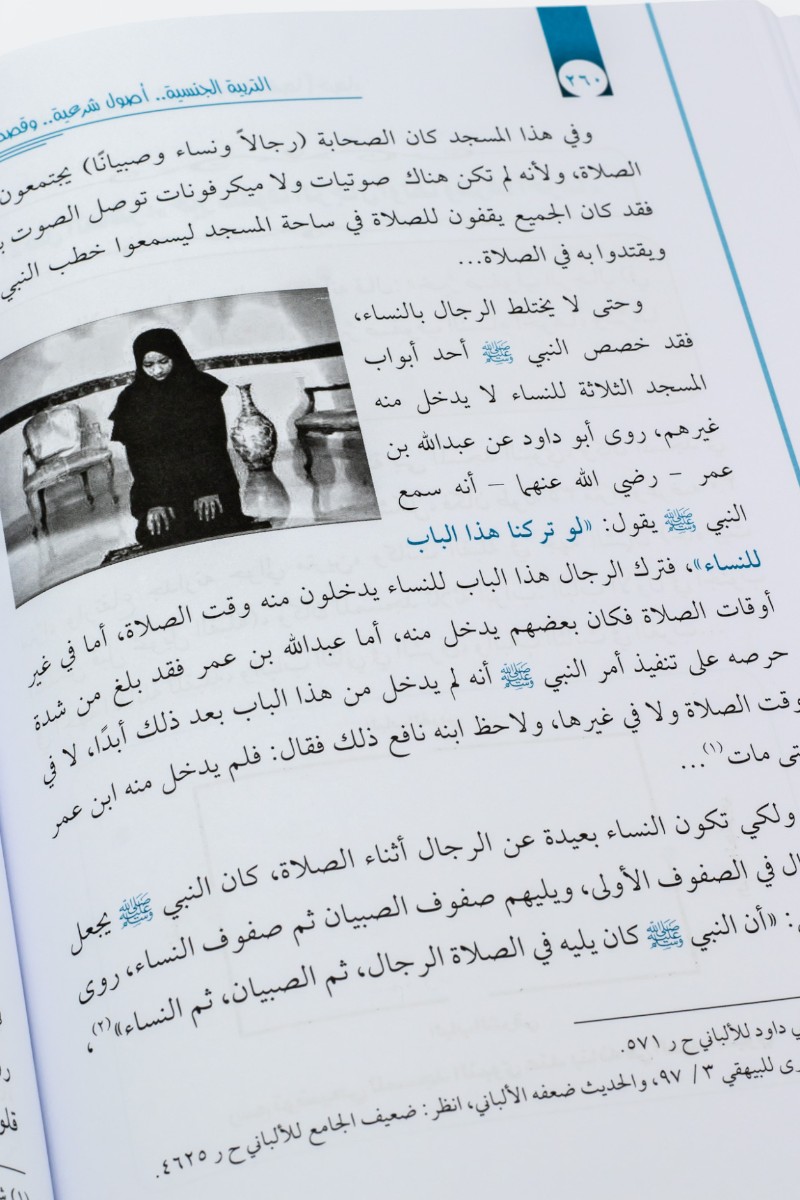 ٢٦٠
التربية الجنسية.. أصول شرعية.. وقصص
وفي هذا المسجد كان الصحابة (رجالاً ونساء وصبيانًا) يجتمعون
الصلاة، ولأنه لم تكن هناك صوتيات ولا ميكرفونات توصل الصوت
فقد كان الجميع يقفون للصلاة في ساحة المسجد ليسمعوا خطب النبي
ويقتدوا به في الصلاة...
وحتى لا يختلط الرجال بالنساء،
فقد خصص النبي ﷺ أحد أبواب
المسجد الثلاثة للنساء لا يدخل منه
غيرهم، روى أبو داود عن عبدالله بن
عمر – رضي الله عنهما – أنه سمع
النبي ﷺ يقول: «لو تركنا هذا الباب
للنساء»، فترك الرجال هذا الباب للنساء يدخلون منه وقت الصلاة، أما في غير
أوقات الصلاة فكان بعضهم يدخل منه، أما عبدالله بن عمر فقد بلغ من شدة
حرصه على تنفيذ أمر النبي ﷺ أنه لم يدخل من هذا الباب بعد ذلك أبدًا، لا في
وقت الصلاة ولا في غيرها، ولاحظ ابنه نافع ذلك فقال: فلم يدخل منه ابن عمر
مات(١)...
ولكي تكون النساء بعيدة عن الرجال أثناء الصلاة، كان النبي ﷺ يجعل
في الصفوف الأولى، ويليهم صفوف الصبيان ثم صفوف النساء، روى
: «أن النبي ﷺ كان يليه في الصلاة الرجال، ثم الصبيان، ثم النساء»(٢)،
داود للألباني ح ر ٥٧١.
للبيهقي ٣ / ٩٧، والحديث ضعفه الألباني، انظر: ضعيف الجامع للألباني ح ر ٤٦٢٥.